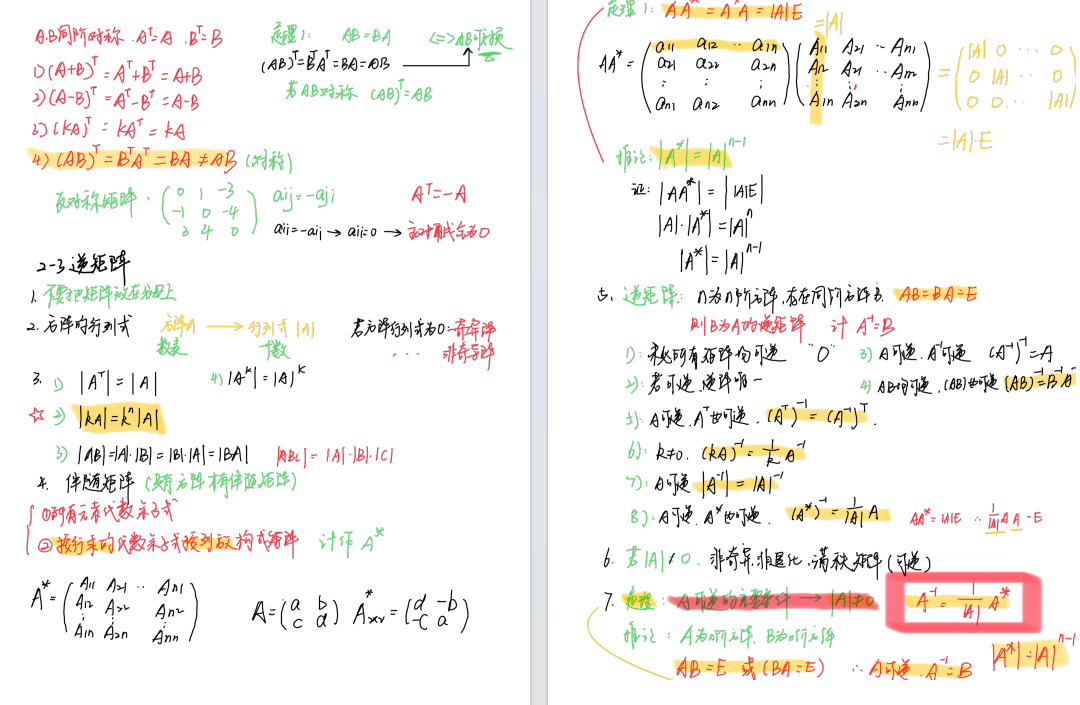 A.B同阶对称 . Aᵀ=A . Bᵀ=B
1) (A+B)ᵀ = Aᵀ+Bᵀ = A+B
2) (A-B)ᵀ = Aᵀ-Bᵀ = A-B
3) (kA)ᵀ = kAᵀ = kA
4) (AB)ᵀ = BᵀAᵀ = BA ≠ AB (对称)
定理1: AB=BA <=> AB可换
(AB)ᵀ=BᵀAᵀ=BA=AB
若AB对称 (AB)ᵀ=AB
反对称矩阵 . ( 0 1 -3
-1 0 -4
3 4 0 )
aij=-aji
Aᵀ=-A
aii=-aij → aii=0 → 主对角线全为0
2-3 逆矩阵
1. 不要把矩阵放在分母上
2. 方阵的行列式 方阵A → 行列式 |A|
数表 个数
若方阵行列式为0: 奇异阵
... 非奇异阵
3. 1) |Aᵀ| = |A| 4) |Aᴷ| = |A|ᴷ
☆ 2) |kA| = kⁿ|A|
3) |AB|=|A|·|B|=|B|·|A|=|BA| |ABC| = |A|·|B|·|C|
4. 伴随矩阵 (只有方阵才有伴随矩阵)
①所有元素代数余子式
②按行求的代数余子式按列放构成矩阵 计作 A*
A* = ( A11 A21 ·· An1
A12 A22 An2
⋮
A1n A2n Ann )
A = ( a b
c d ) A* = ( d -b
-c a )
定理1: AA* = A*A = |A|E
=|A|
AA* = ( a11 a12 ·· a1n
a21 a22 a2n
⋮ ⋮ ⋮
an1 an2 ann ) ( A11 A21 ·· An1
A12 A21 ·· An2
⋮
A1n A2n Ann ) = ( |A| 0 ··· 0
0 |A| ··· 0
0 0 ··· |A| )
= |A|·E
推论: |A*| = |A|ⁿ⁻¹
证: |AA*| = ||A|E|
|A|·|A*| = |A|ⁿ
|A*| = |A|ⁿ⁻¹
五. 逆矩阵: n为n阶方阵,存在同阶方阵B. AB=BA=E
则B为A的逆矩阵 计 A⁻¹=B
1): 未必所有矩阵均可逆 "0" 3) A可逆. A⁻¹可逆 (A⁻¹)⁻¹=A
2): 若可逆,逆阵唯一 4) AB均可逆. (AB)也可逆 (AB)⁻¹=B⁻¹A⁻
5): A可逆. Aᵀ也可逆. (Aᵀ)⁻¹ = (A⁻¹)ᵀ.
6): k≠0. (kA)⁻¹ = 1/k A⁻¹
7): A可逆 |A⁻¹| = |A|⁻¹
8): A可逆. A*也可逆. (A*)⁻¹ = 1/|A| A AA*=|A|E ∴ 1/|A| A A = E
6. 若|A|≠0. 非奇异.非退化.满秩矩阵(可逆)
7. 定理: A可逆的充要条件 → |A|≠0. A⁻¹ = 1/|A| A*
推论: A为n阶方阵. B为n阶方阵
AB=E 或 (BA=E) ∴ A可逆. A⁻¹=B
|A*|=|A|ⁿ⁻¹